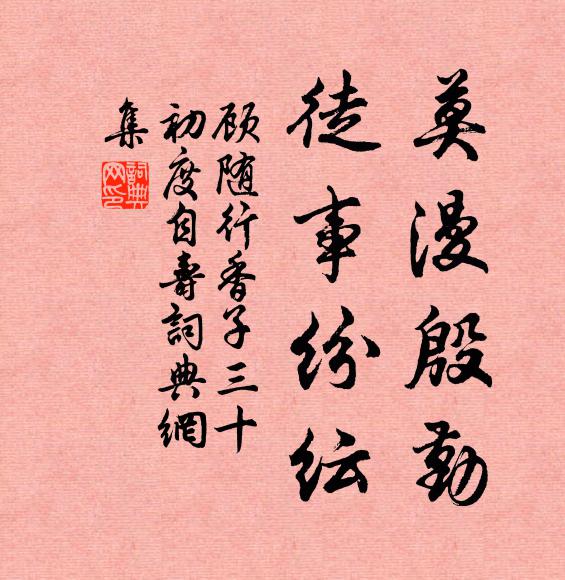 莫漫殷勤
徒事紛紜
顾随行香子三十
初度自壽詞典網
集
詞典
网印